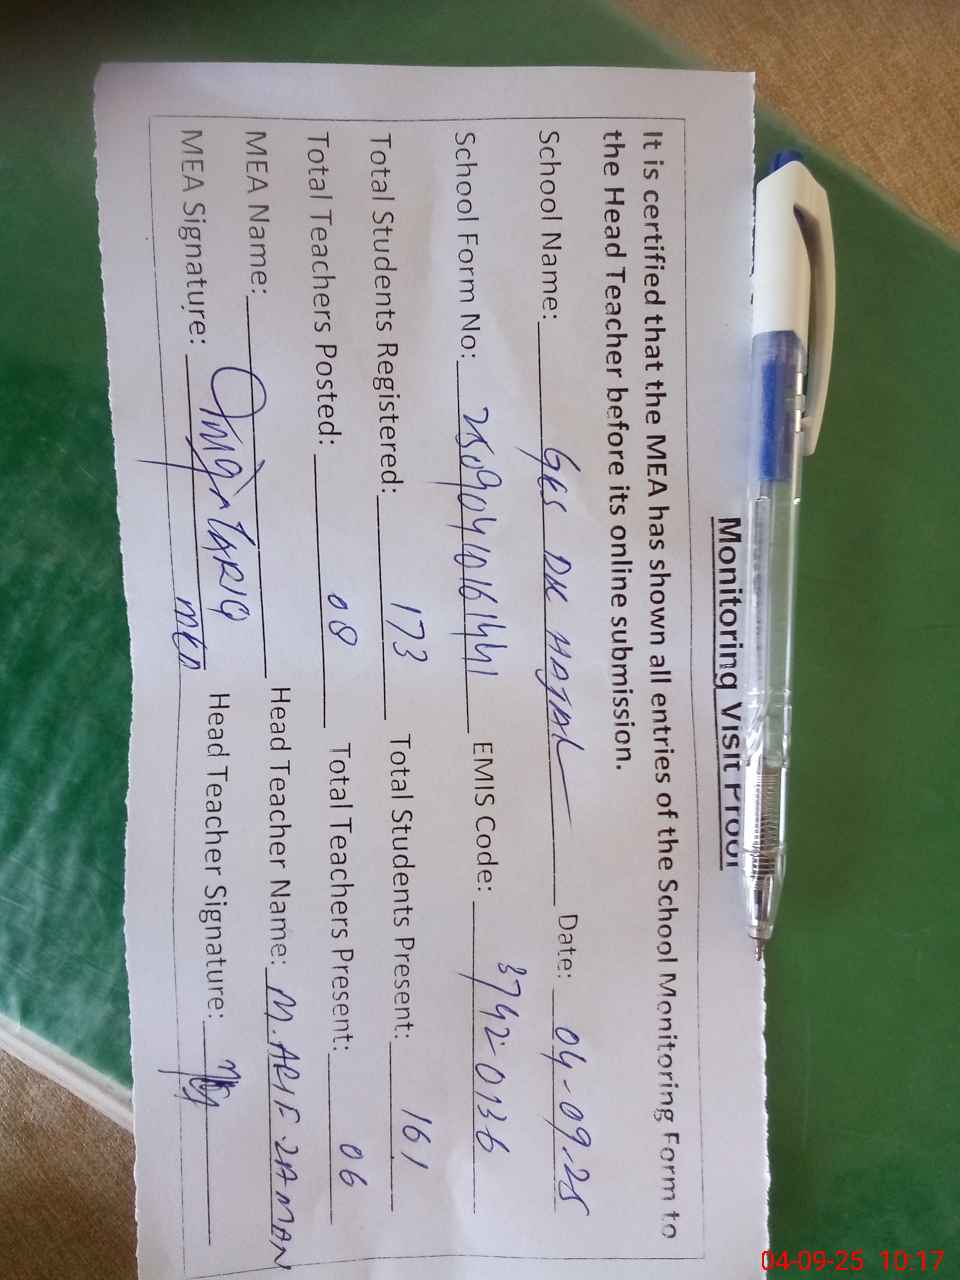 Monitoring Visit Proof
It is certified that the MEA has shown all entries of the School Monitoring Form to
the Head Teacher before its online submission.
School Name: GES DK Date: 04-09-25
School Form No: 25090410161441 EMIS Code: 37420136
Total Students Registered: 173 Total Students Present: 161
Total Teachers Posted: 08 Total Teachers Present: 06
MEA Name: TARIQ Head Teacher Name: M. ARIF ZAMAN
MEA Signature: Head Teacher Signature:
04-09-25 10:17